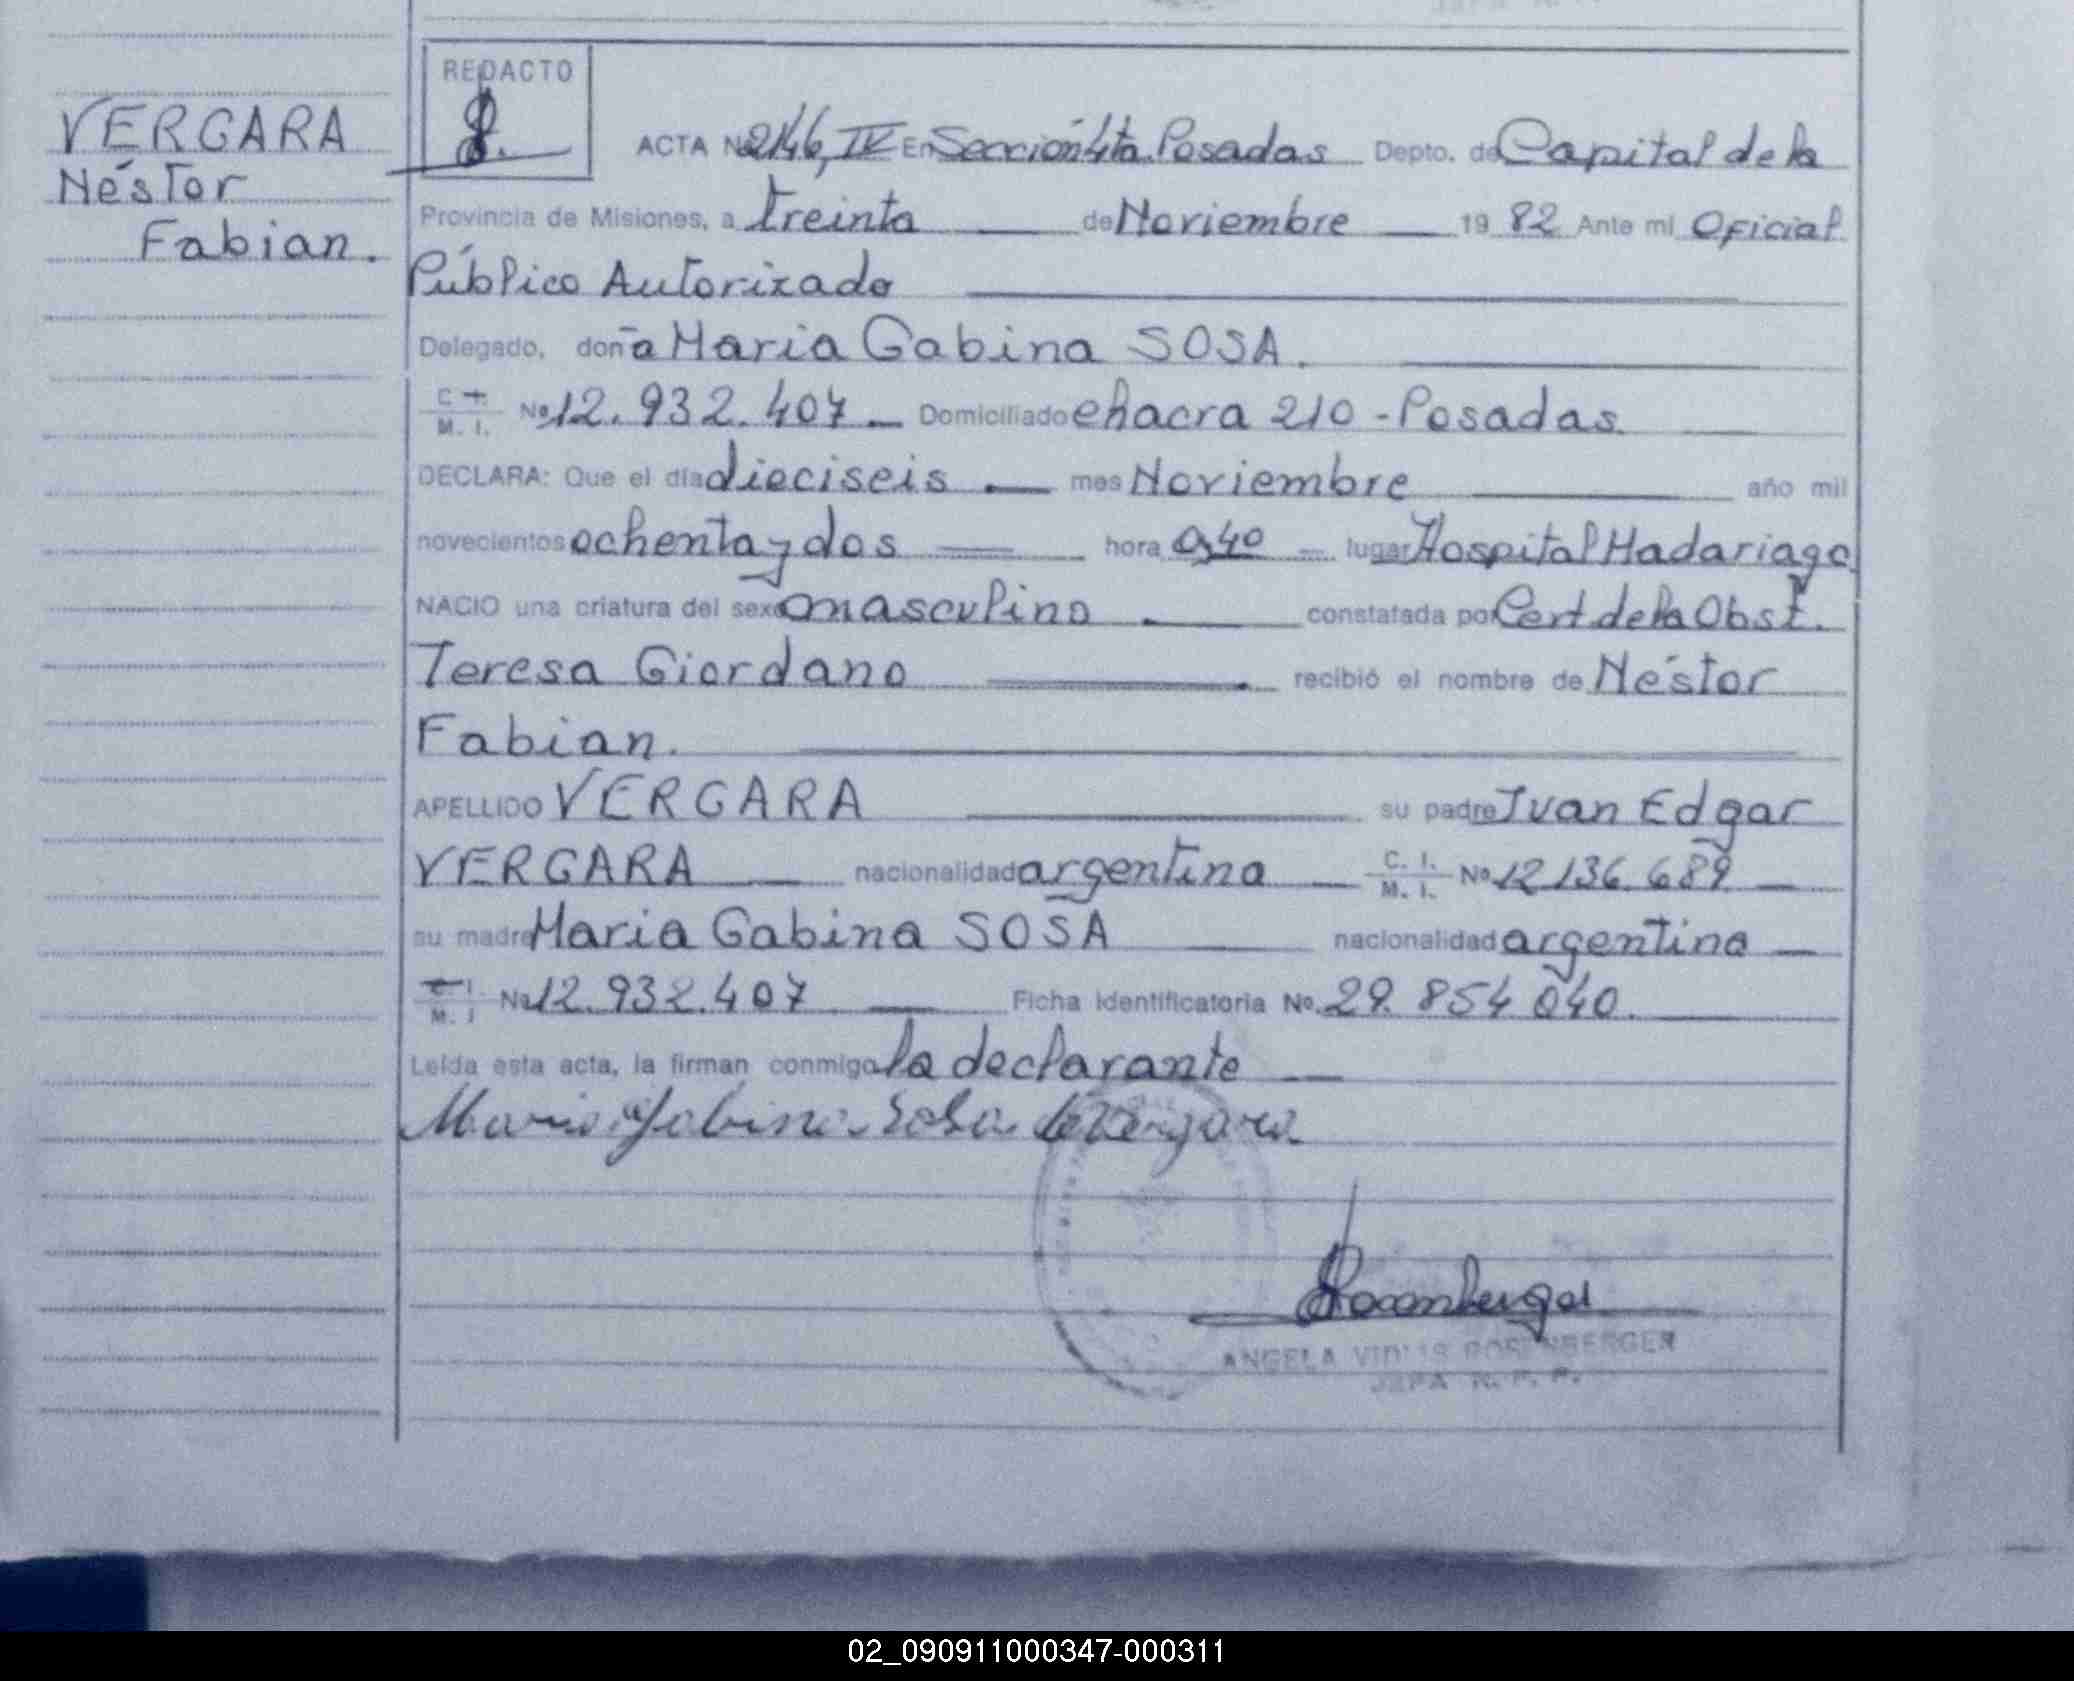 VERGARA
Néstor
Fabian.
REDACTO
ACTA Nº 2146, IV En Sección 4ta. Posadas Depto. de Capital de la
Provincia de Misiones, a treinta de Noviembre 1982 Ante mi Oficial
Público Autorizado
Delegado, doña Maria Gabina SOSA.
C. I. M. I. Nº 12.932.407 Domiciliado chacra 210 - Posadas.
DECLARA: Que el día dieciseis mes Noviembre año mil
novecientos ochenta y dos hora 0,40 lugar Hospital Madariaga
NACIO una criatura del sexo masculino constatada por Cert. de la Obst.
Teresa Giordano recibió el nombre de Néstor
Fabian.
APELLIDO VERGARA su padre Ivan Edgar
VERGARA nacionalidad argentina C. I. M. I. Nº 12 136 689
su madre Maria Gabina SOSA nacionalidad argentina
C. I. M. I Nº 12.932.407 Ficha Identificatoria No. 29.854 040.
Leída esta acta, la firman conmigo la declarante
Maria Gabina Sosa de Vergara
Rosenberger
ANGELA ROSENBERGER
JEFA R. P. P.
02_090911000347-000311